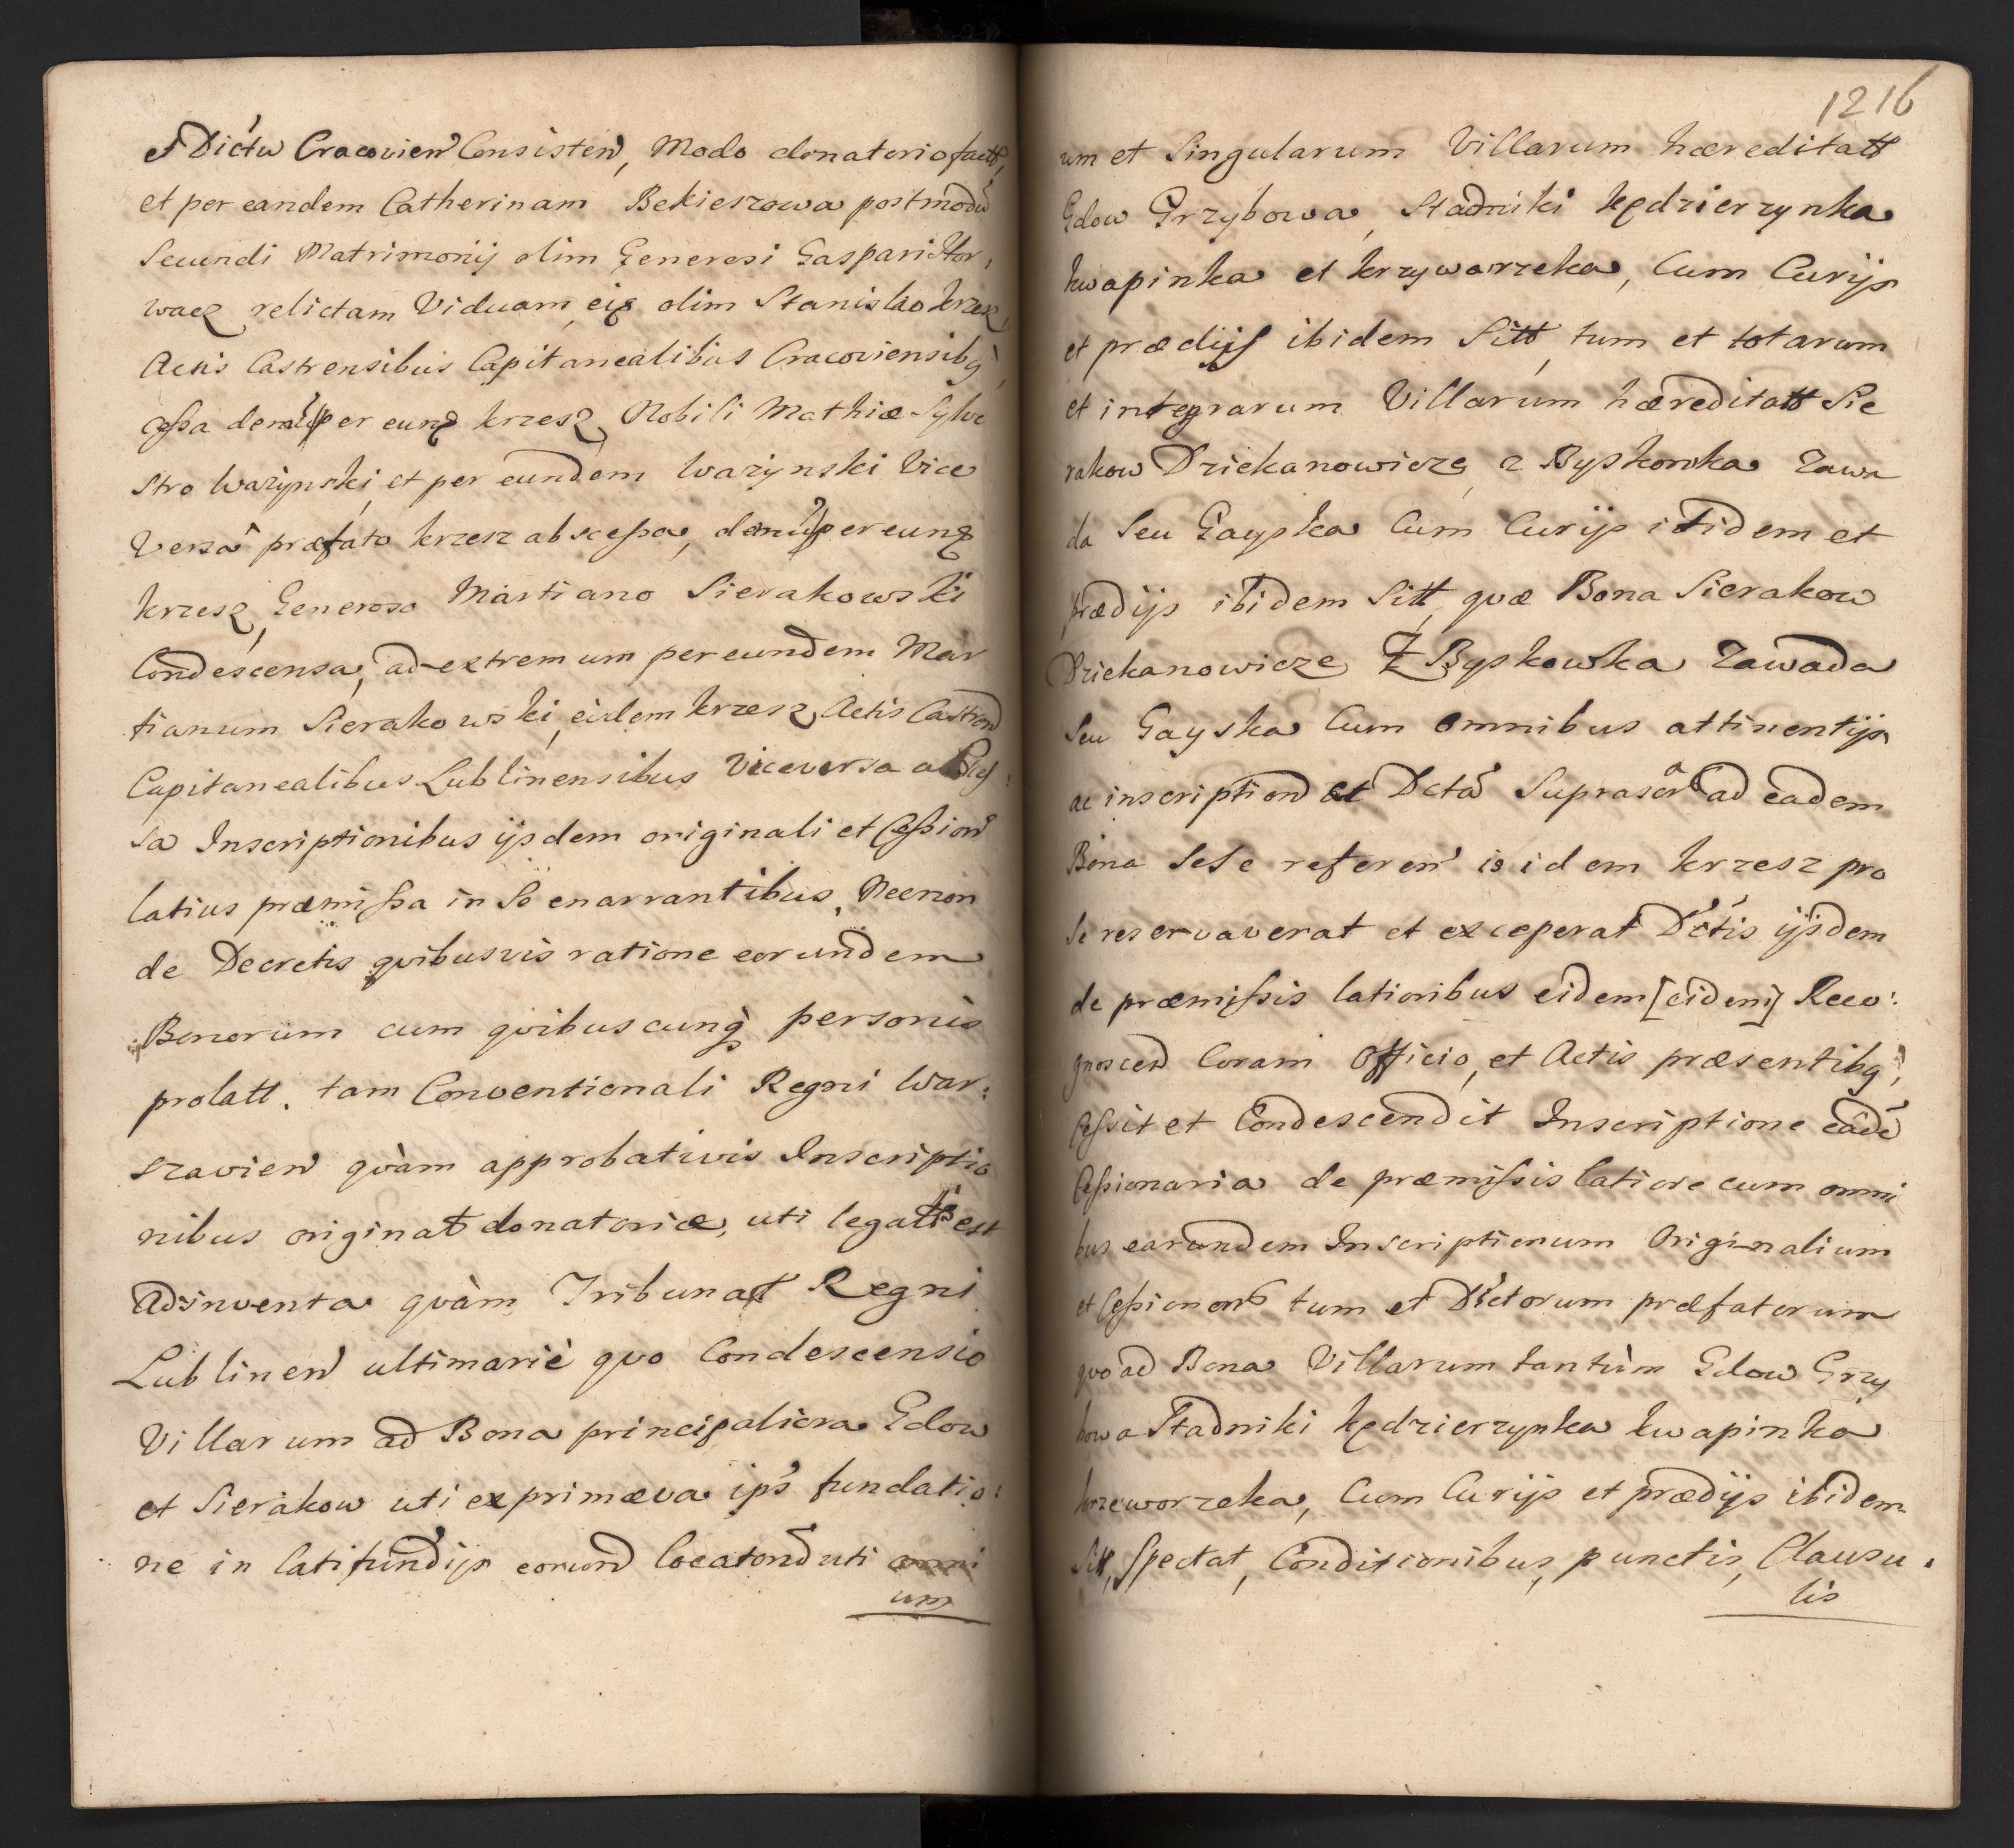 et Dictu Cracovien Consisten, Modo donatorio factt,
et per eandem Catherinam Bekieszowa postmodu
Secundi Matrimonij olim Generosi Gaspari Hor,
wacz relictam Viduam eiq olim Stanislao krzesz,
Actis Castrensibus Capitanealibus Cracoviensibq,
Cessa demu per eunq krzesz, Nobili Mathiæ Sylve
stro Warzynski, et per eundem Warzynski Vice
Versâ præfato krzesz abscessa, demu per eunq
krzesz, Generoso Martiano Sierakowski
Condescensa, ad extremum per eundem Mar
tianum Sierakowski, eidem krzesz, Actis Castren
Capitanealibus Lublinensibus Viceversa absces:
sa Inscriptionibus ijsdem originali et Cession
latius præmissa in Se enarrantibus, Necnon
de Decretis qvibusvis ratione eorundem
Bonorum cum qvibuscunq personis
prolatt. tam Conventionali Regni War:
szavien qvàm approbativis Inscriptio
nibus originat donatoriæ, uti legatt est
Adinventa qvàm Tribunat Regni
Lublinen ultimariè qvo Condescensio
Villarum ad Bona principaliora Gdow
et Sierakow uti ex primæva ips fundatio:
ne in latifundijs eorund locatond uti
um
1216
um et Singularum Villarum hæreditatt
Gdow Grzybowa, Stadniki kędzierzynka
kwapinka et krzyworzeka, Cum Curijs
et prædijs ibidem Sitt, tum et totarum
et integrarum Villarum hæreditatt Sie
rakow Dziekanowicze, z Byskowka Zawa
da Seu Gayska Cum Curijs ibidem et
prædijs ibidem Sitt, qvæ Bona Sierakow
Dziekanowicze Z Byskowka Zawada
Seu Gayska Cum Omnibus attinentijs
ac inscription et Dcta Suprascr ad eadem
Bona Sese referen is idem krzesz pro
Se reservaverat et exceperat Dctis ijsdem
de præmissis latioribus eidem [eidem] Reco:
gnoscen Coram Officio, et Actis præsentibq,
Cessit et Condescendit Inscriptione eade
Cessionaria de præmissis latiore cum omni
bus earundem Inscriptionum Originalium
et Cessionom tum et Dictorum præfatorum
qvo ad Bona Villarum tantùm Gdow Grzy
bowa Stadniki kędzierzynka kwapinka
krzeworzeka, Cum Curijs et prædijs ibidem
Sitt, Spectat, Conditionibus, punctis, Clausu.
lis